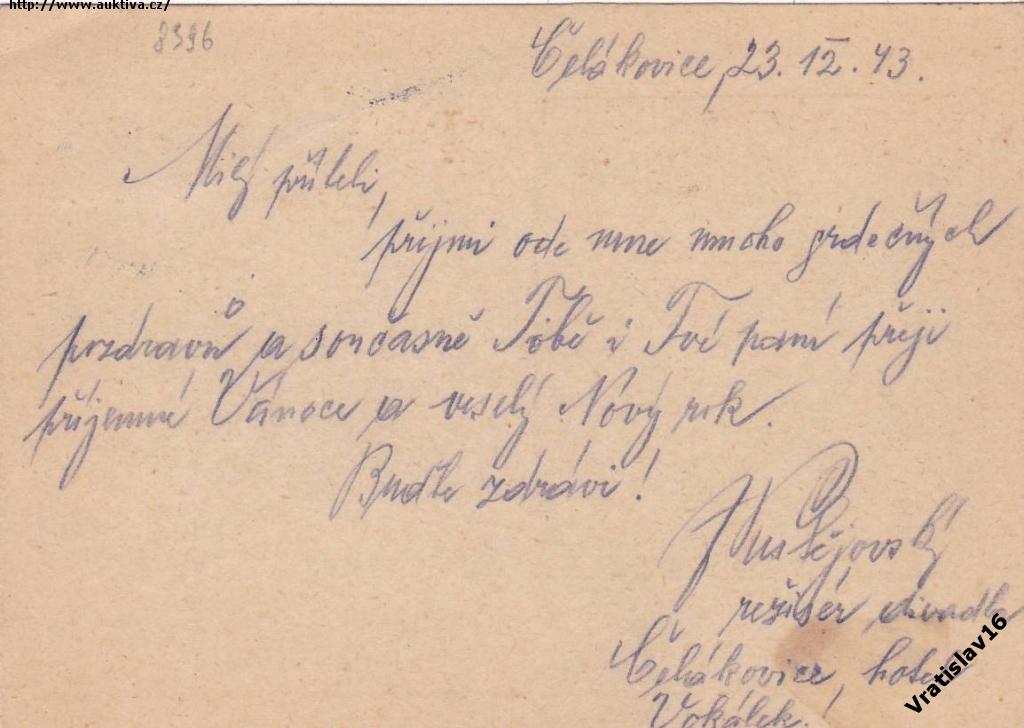 http://www.auktiva.cz/
8396
Čelákovice, 23. 12. 43.
Milý příteli,
přijmi ode mne mnoho srdečných
pozdravů a současně Tobě i Tvé paní přeji
příjemné Vánoce a veselý Nový rok.
Buďte zdrávi!
režisér divadla
Čelákovice, hotel
Vokálek!
Vratislav16